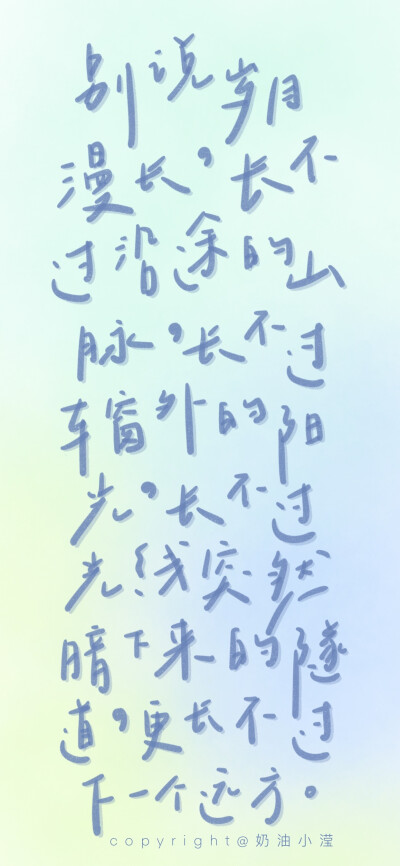 别说岁月
漫长，长不
过沿途的山
脉，长不过
车窗外的阳
光，长不过
光线突然
暗下来的隧
道，更长不过
下一个远方。
copyright@奶油小滢